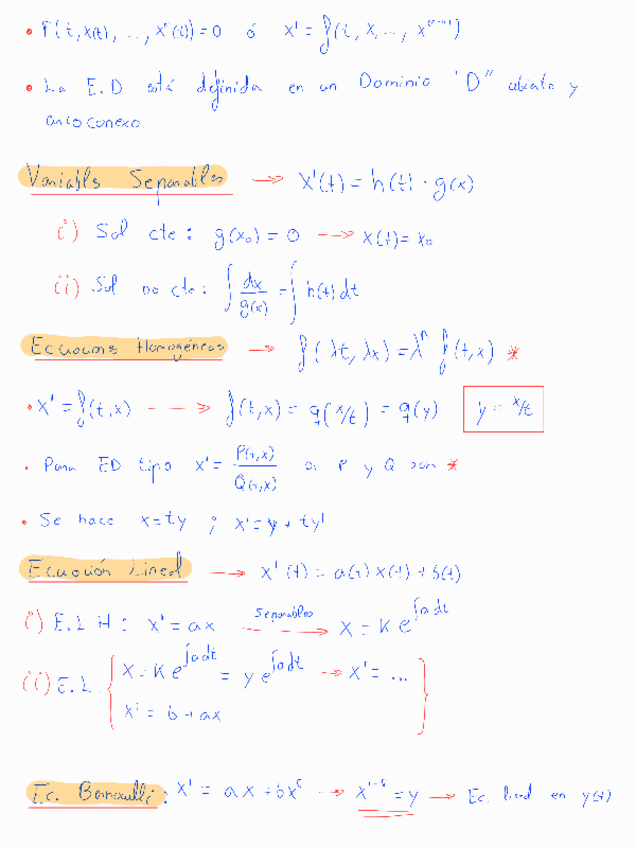 • F(t, x(t), ..., xⁿ(t)) = 0 ó x' = f(t, x, ..., x⁽ⁿ⁻¹⁾)
• La E.D está definida en un Dominio "D" abierto y
arcoconexo
Variables Separables → x'(t) = h(t) · g(x)
i) Sol cte: g(x₀) = 0 → x(t) = x₀
ii) Sol no cte: ∫ dx/g(x) = ∫ h(t) dt
Ecuaciones Homogéneas → f(λt, λx) = λⁿ f(t, x) *
• x' = f(t, x) --→ f(t, x) = g(x/t) = g(y) y = x/t
• Para ED tipo x' = P(t,x)/Q(t,x) si P y Q son *
• Se hace x = ty ; x' = y + ty'
Ecuación Lineal → x'(t) = a(t) x(t) + b(t)
i) E.L H: x' = ax Separables → x = K e^∫a dt
ii) E.L. { x = K e^∫a dt = y e^∫a dt → x' = ... }
x' = b + ax
Ec. Bernoulli: x' = ax + bxˢ → x¹⁻ˢ = y → Ec. lineal en y(t)